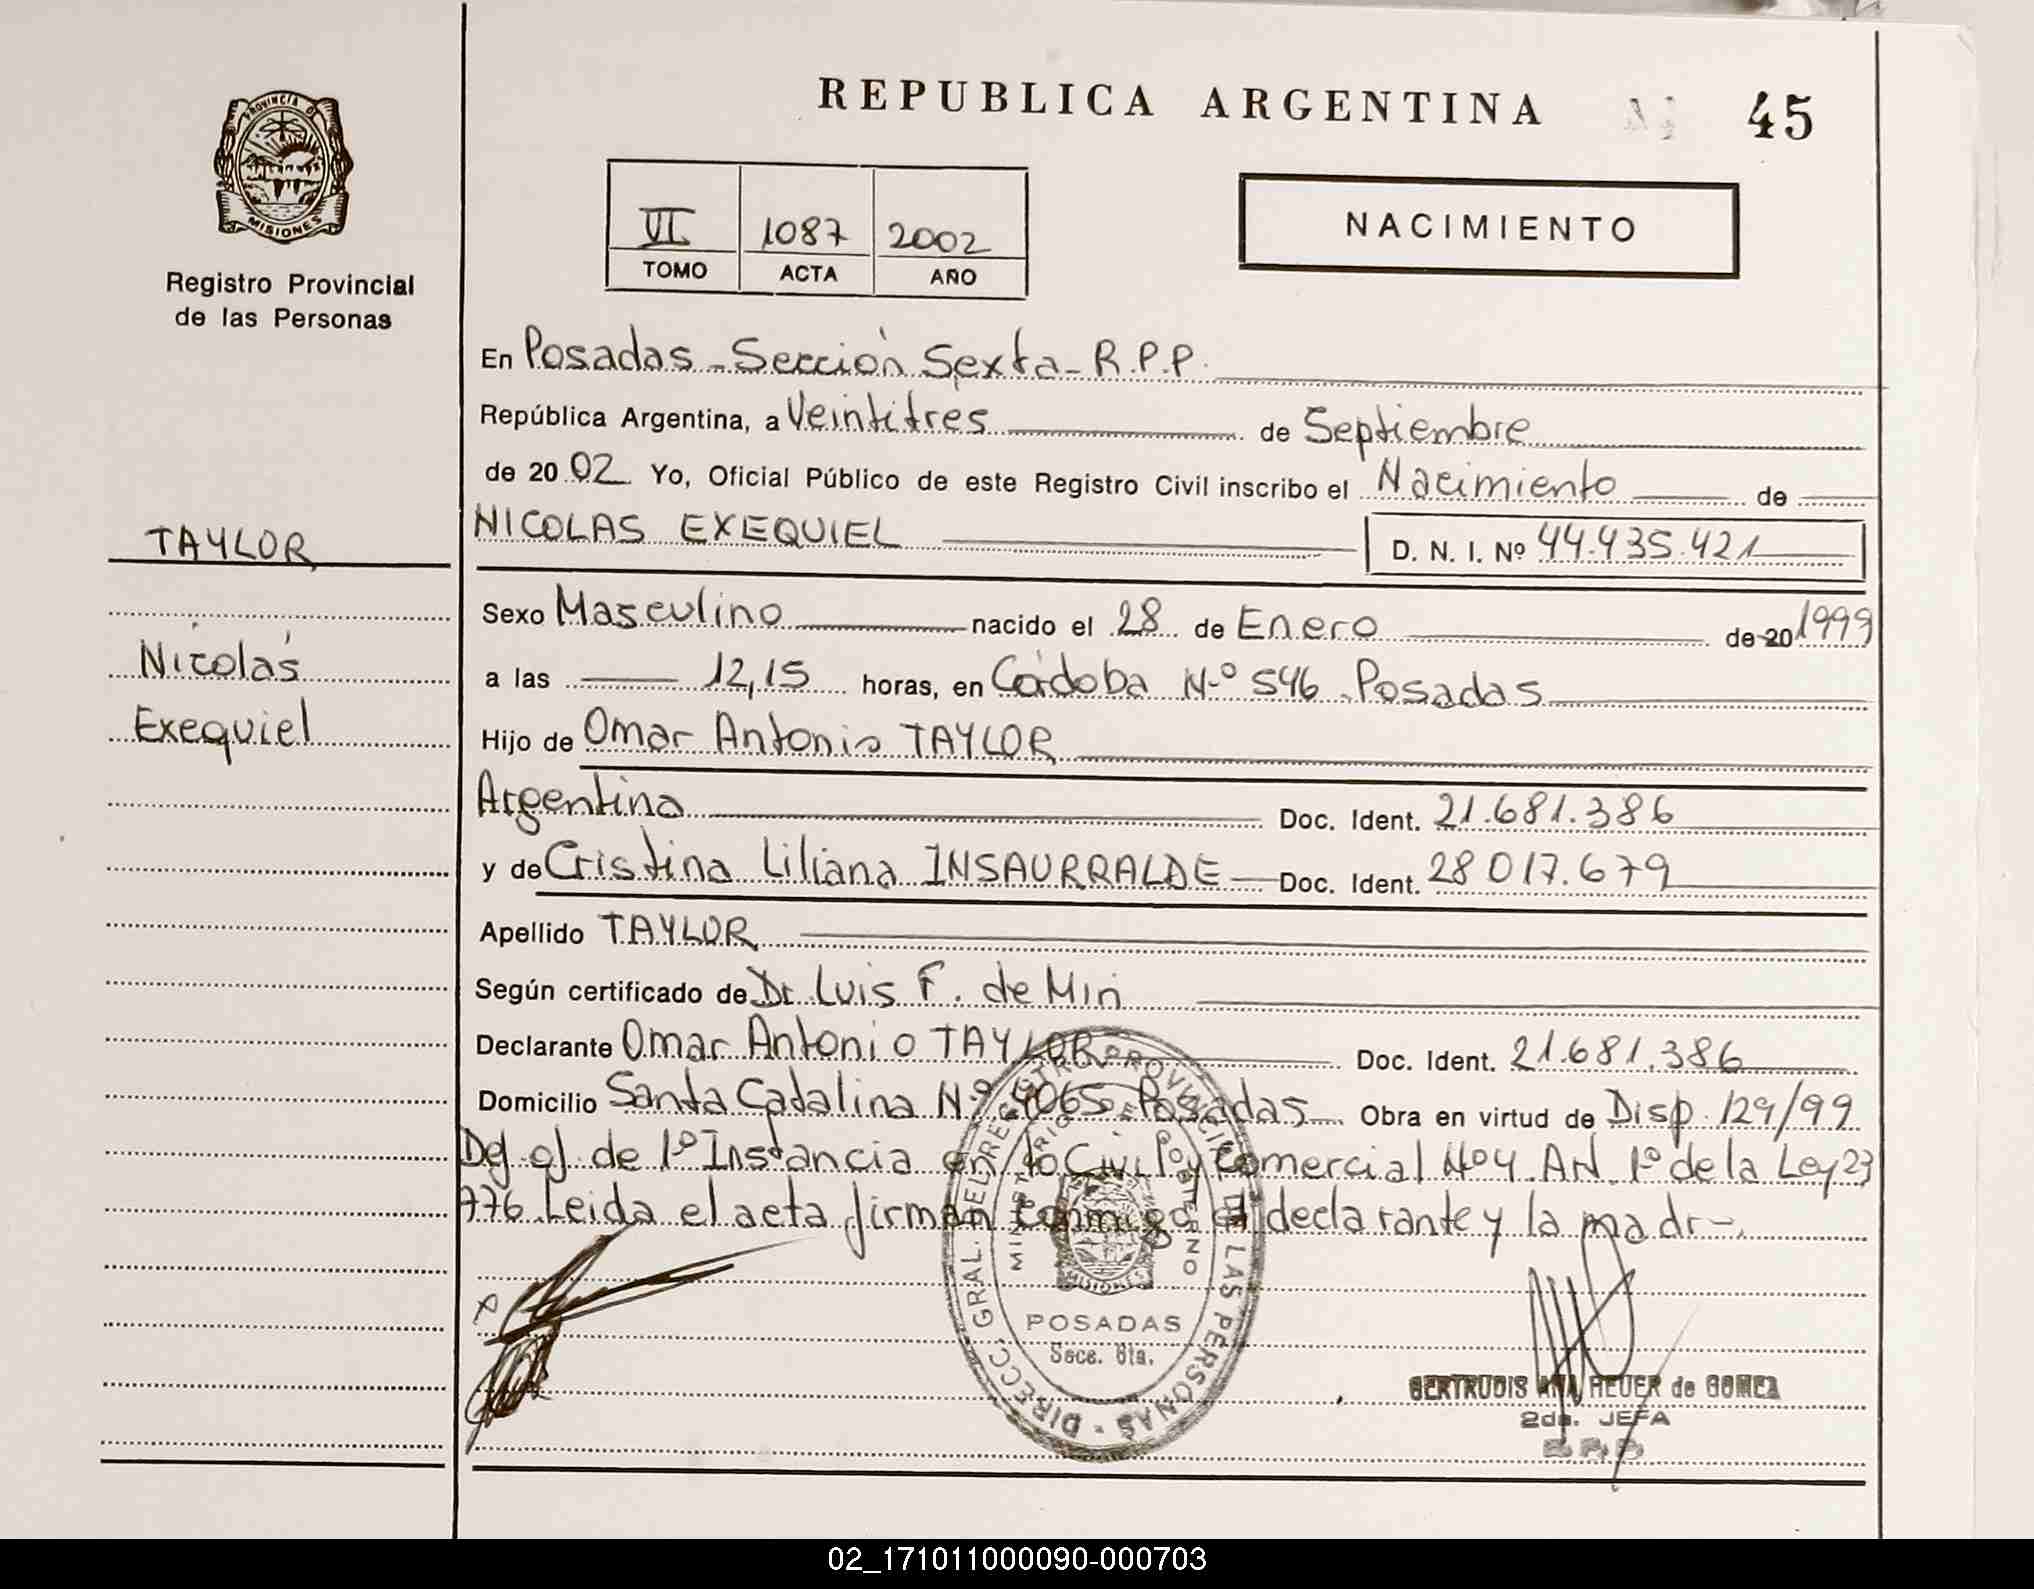 REPUBLICA ARGENTINA
45
PROVINCIA D
MISIONES
Registro Provincial
de las Personas
VI 1087 2002
TOMO ACTA AÑO
NACIMIENTO
En Posadas - Sección Sexta - R.P.P.
República Argentina, a Veintitres de Septiembre
de 2002 Yo, Oficial Público de este Registro Civil inscribo el Nacimiento de
TAYLOR
NICOLAS EXEQUIEL D. N. I. Nº 44.435.421
Sexo Masculino nacido el 28 de Enero de 20 1999
Nicolás
a las 12,15 horas, en Córdoba Nº 546 Posadas
Exequiel
Hijo de Omar Antonio TAYLOR
Argentina Doc. Ident. 21.681.386
y de Cristina Liliana INSAURRALDE Doc. Ident. 28 017.679
Apellido TAYLOR
Según certificado de Dr. Luis F. de Miri
Declarante Omar Antonio TAYLOR Doc. Ident. 21.681.386
Domicilio Santa Catalina Nº 4065 Posadas Obra en virtud de Disp. 129/99
de 1º Instancia en lo Civil y Comercial Nº 4. Art. 1º de la Ley 23
776. Leida el acta firman conmigo el declarante y la madr-.
DIRECC. GRAL. DEL REGISTRO PROVINCIAL DE LAS PERSONAS
MINISTERIO DE GOBIERNO
MISIONES
POSADAS
Secc. 6ta.
GERTRUDIS ANA HEUER de GOMEZ
2da. JEFA
R.P.P.
02_171011000090-000703